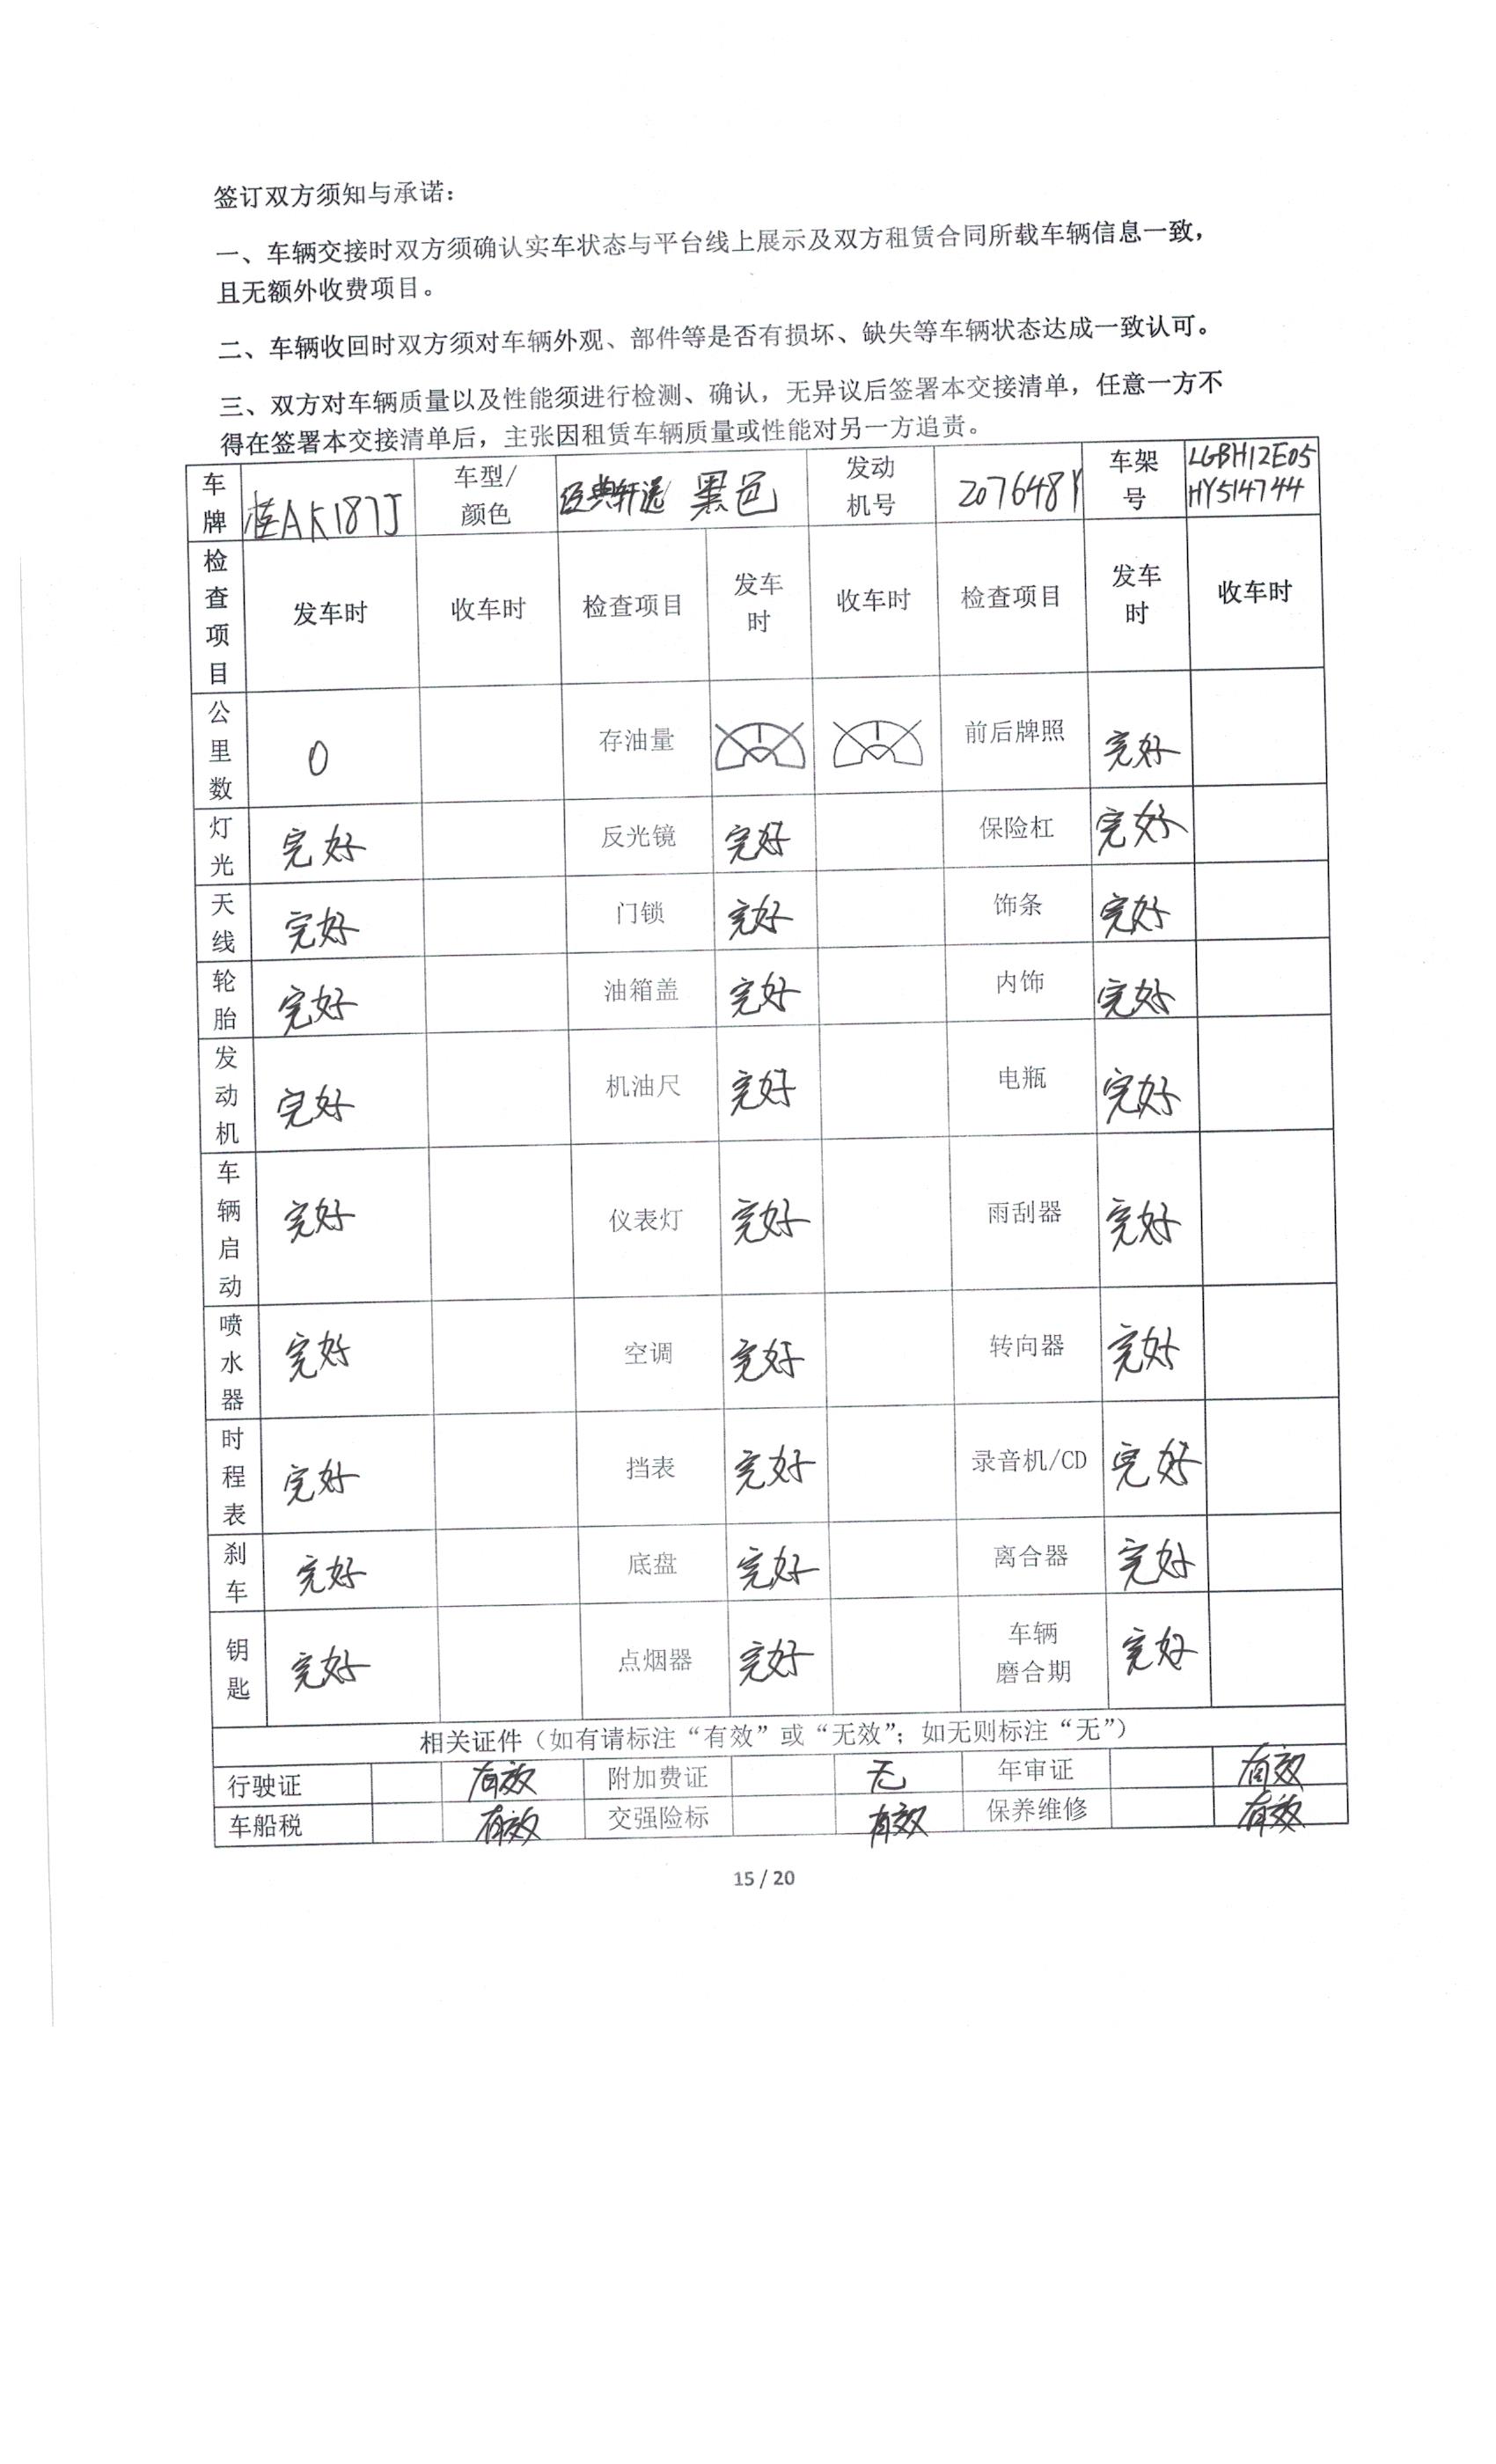 签订双方须知与承诺：
一、车辆交接时双方须确认实车状态与平台线上展示及双方租赁合同所载车辆信息一致，
且无额外收费项目。
二、车辆收回时双方须对车辆外观、部件等是否有损坏、缺失等车辆状态达成一致认可。
三、双方对车辆质量以及性能须进行检测、确认，无异议后签署本交接清单，任意一方不
得在签署本交接清单后，主张因租赁车辆质量或性能对另一方追责。
车牌 桂AK187J 车型/颜色 经典轩逸 黑色 发动机号 207648Y 车架号 LGBH12E05HY514744
检查项目 发车时 收车时 检查项目 发车时 收车时 检查项目 发车时 收车时
公里数 0 存油量 前后牌照 完好
灯光 完好 反光镜 完好 保险杠 完好
天线 完好 门锁 完好 饰条 完好
轮胎 完好 油箱盖 完好 内饰 完好
发动机 完好 机油尺 完好 电瓶 完好
车辆启动 完好 仪表灯 完好 雨刮器 完好
喷水器 完好 空调 完好 转向器 完好
时程表 完好 挡表 完好 录音机/CD 完好
刹车 完好 底盘 完好 离合器 完好
钥匙 完好 点烟器 完好 车辆磨合期 完好
相关证件（如有请标注“有效”或“无效”；如无则标注“无”）
行驶证 有效 附加费证 无 年审证 有效
车船税 有效 交强险标 有效 保养维修 有效
15 / 20